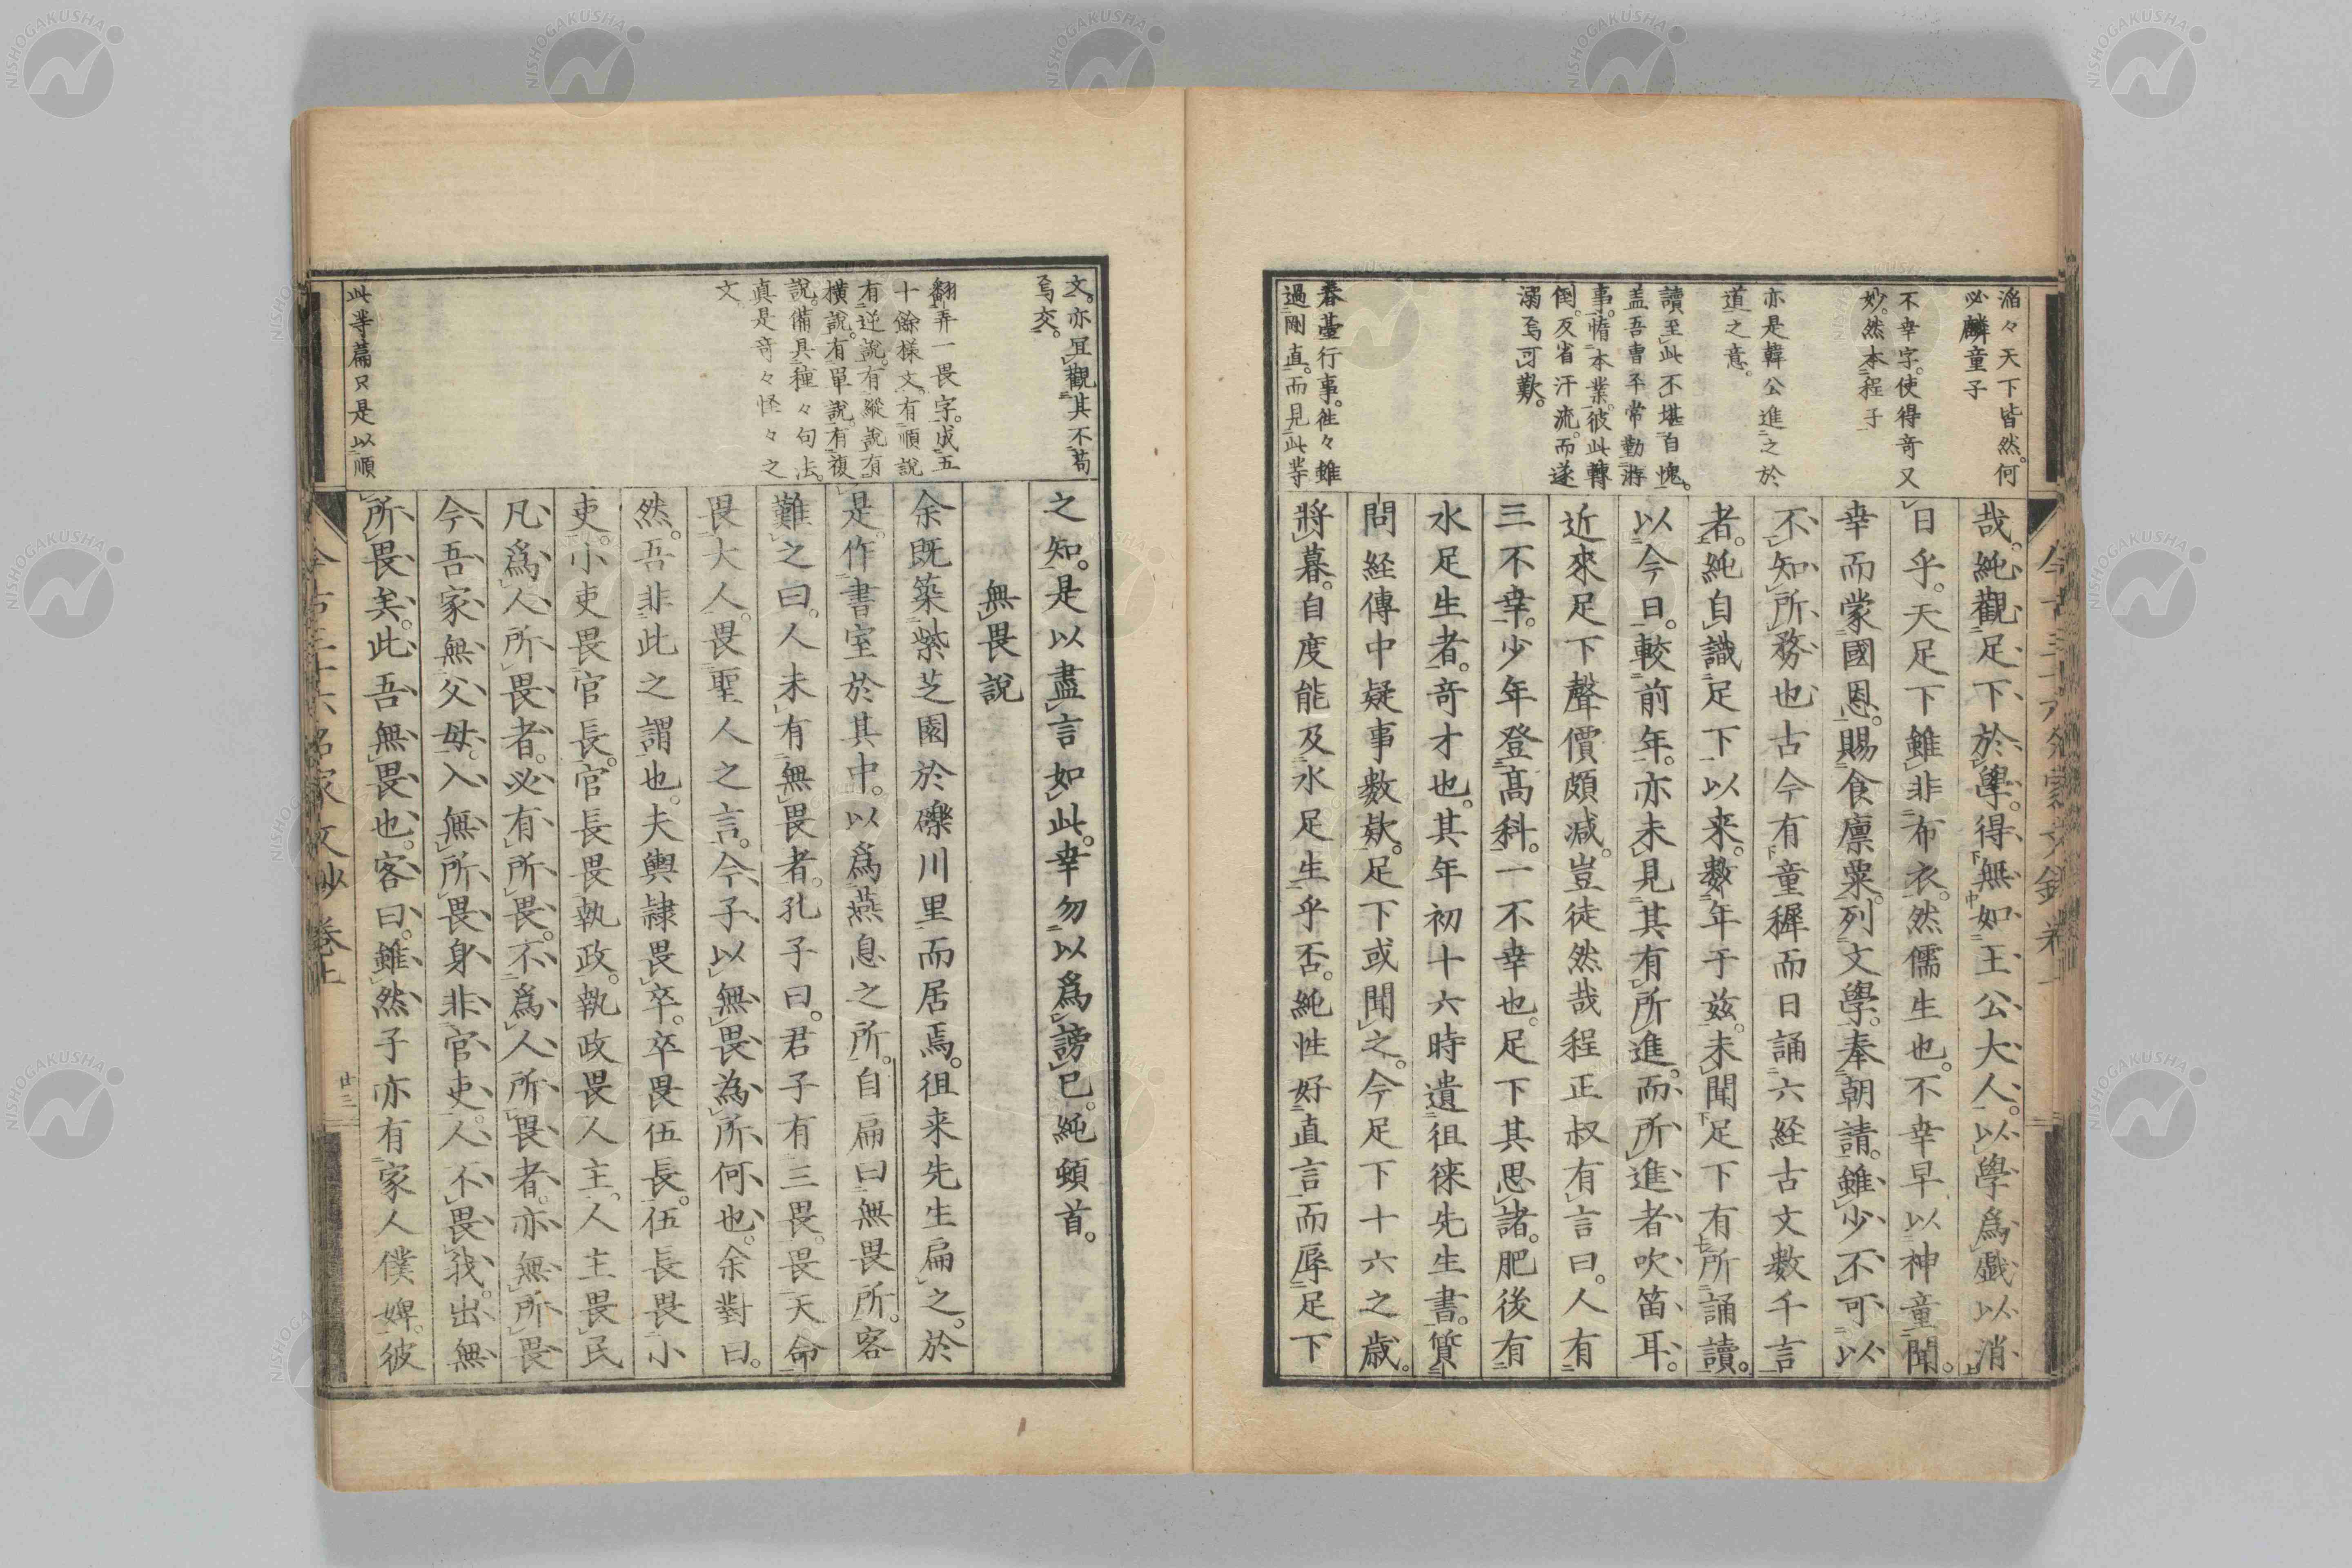 滔々天下皆然。何
必麟童子
不幸字。使得奇又
妙。然本程子
亦是韓公進之於
道之意。
讀至此不堪自愧。
盖吾曹平常勤游
事。惰本業。彼此轉
倒。反省汗流。而遂
溺焉可歎。
春臺行事。往々雖
過剛直。而見此等
哉。純觀足下於學。得無如王公大人。以學爲戲以消
日乎。天足下雖非布衣。然儒生也。不幸早以神童聞。
幸而蒙國恩。賜食廩粟。列文學。奉朝請。雖少不可以
不知所務也古今有童穉而日誦六経古文數千言
者。純自識足下以来。數年于茲。未聞足下有所誦讀。
以今日。較前年。亦未見其有所進。而所進者吹笛耳。
近來足下聲價頗減。豈徒然哉程正叔有言曰。人有
三不幸。少年登髙科。一不幸也。足下其思諸。肥後有
水足生者。奇才也。其年初十六時遺徂徠先生書。質
問経傳中疑事數欵。足下或聞之。今足下十六之歳。
將暮。自度能及水足生乎否。純性好直言而辱足下
文。亦宜觀其不苟
焉交。
翻弄一畏字。成五
十餘様文。有順說
有逆說。有縱說有
橫說。有單說。有複
說。備具種々句法。
眞是奇々怪々之
文
此等篇又是以順
之知。是以盡言如此。幸勿以爲謗已。純頓首。
無畏說
余既築紫芝園於礫川里而居焉。徂来先生扁之。於
是。作書室於其中。以爲燕息之所。自扁曰無畏所。客
難之曰。人未有無畏者。孔子曰。君子有三畏。畏天命
畏大人。畏聖人之言。今子以無畏為所何也。余對曰。
然。吾非此之謂也。夫輿隷畏卒。卒畏伍長。伍長畏小
吏。小吏畏官長。官長畏執政。執政畏人主。人主畏民
凡爲人所畏者。必有所畏。不爲人所畏者。亦無所畏
今吾家無父母。入無所畏身非官吏。人不畏我。出無
所畏矣。此吾無畏也。客曰。雖然子亦有家人僕婢。彼
今古三十六名家文妙 卷上
廿三